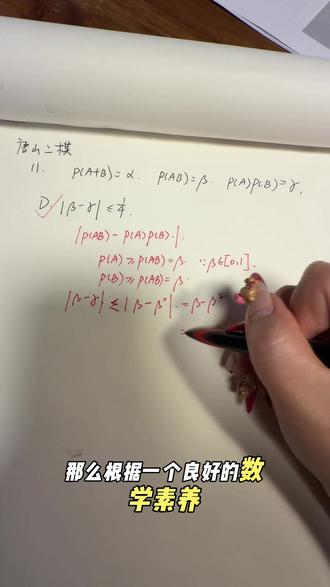 唐山二模
11. P(A+B)=α. P(AB)=β. P(A)P(B)=γ.
D. |β-γ|≤1/4.
|P(AB)-P(A)P(B)|.
P(A)≥P(AB)=β. ∵β∈[0,1].
P(B)≥P(AB)=β.
|β-γ|≤|β-β²|.=β-β²
那么根据一个良好的数
学素养